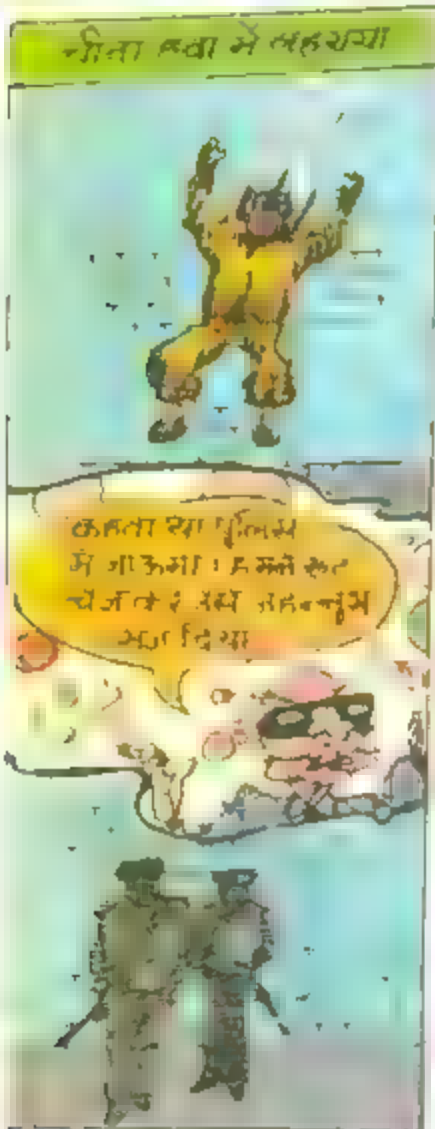 चीता हवा में लहराया
कहता था पुलिस
में जाऊंगा। हमने रूट
चेंज कर उसे जहन्नुम
भेज दिया